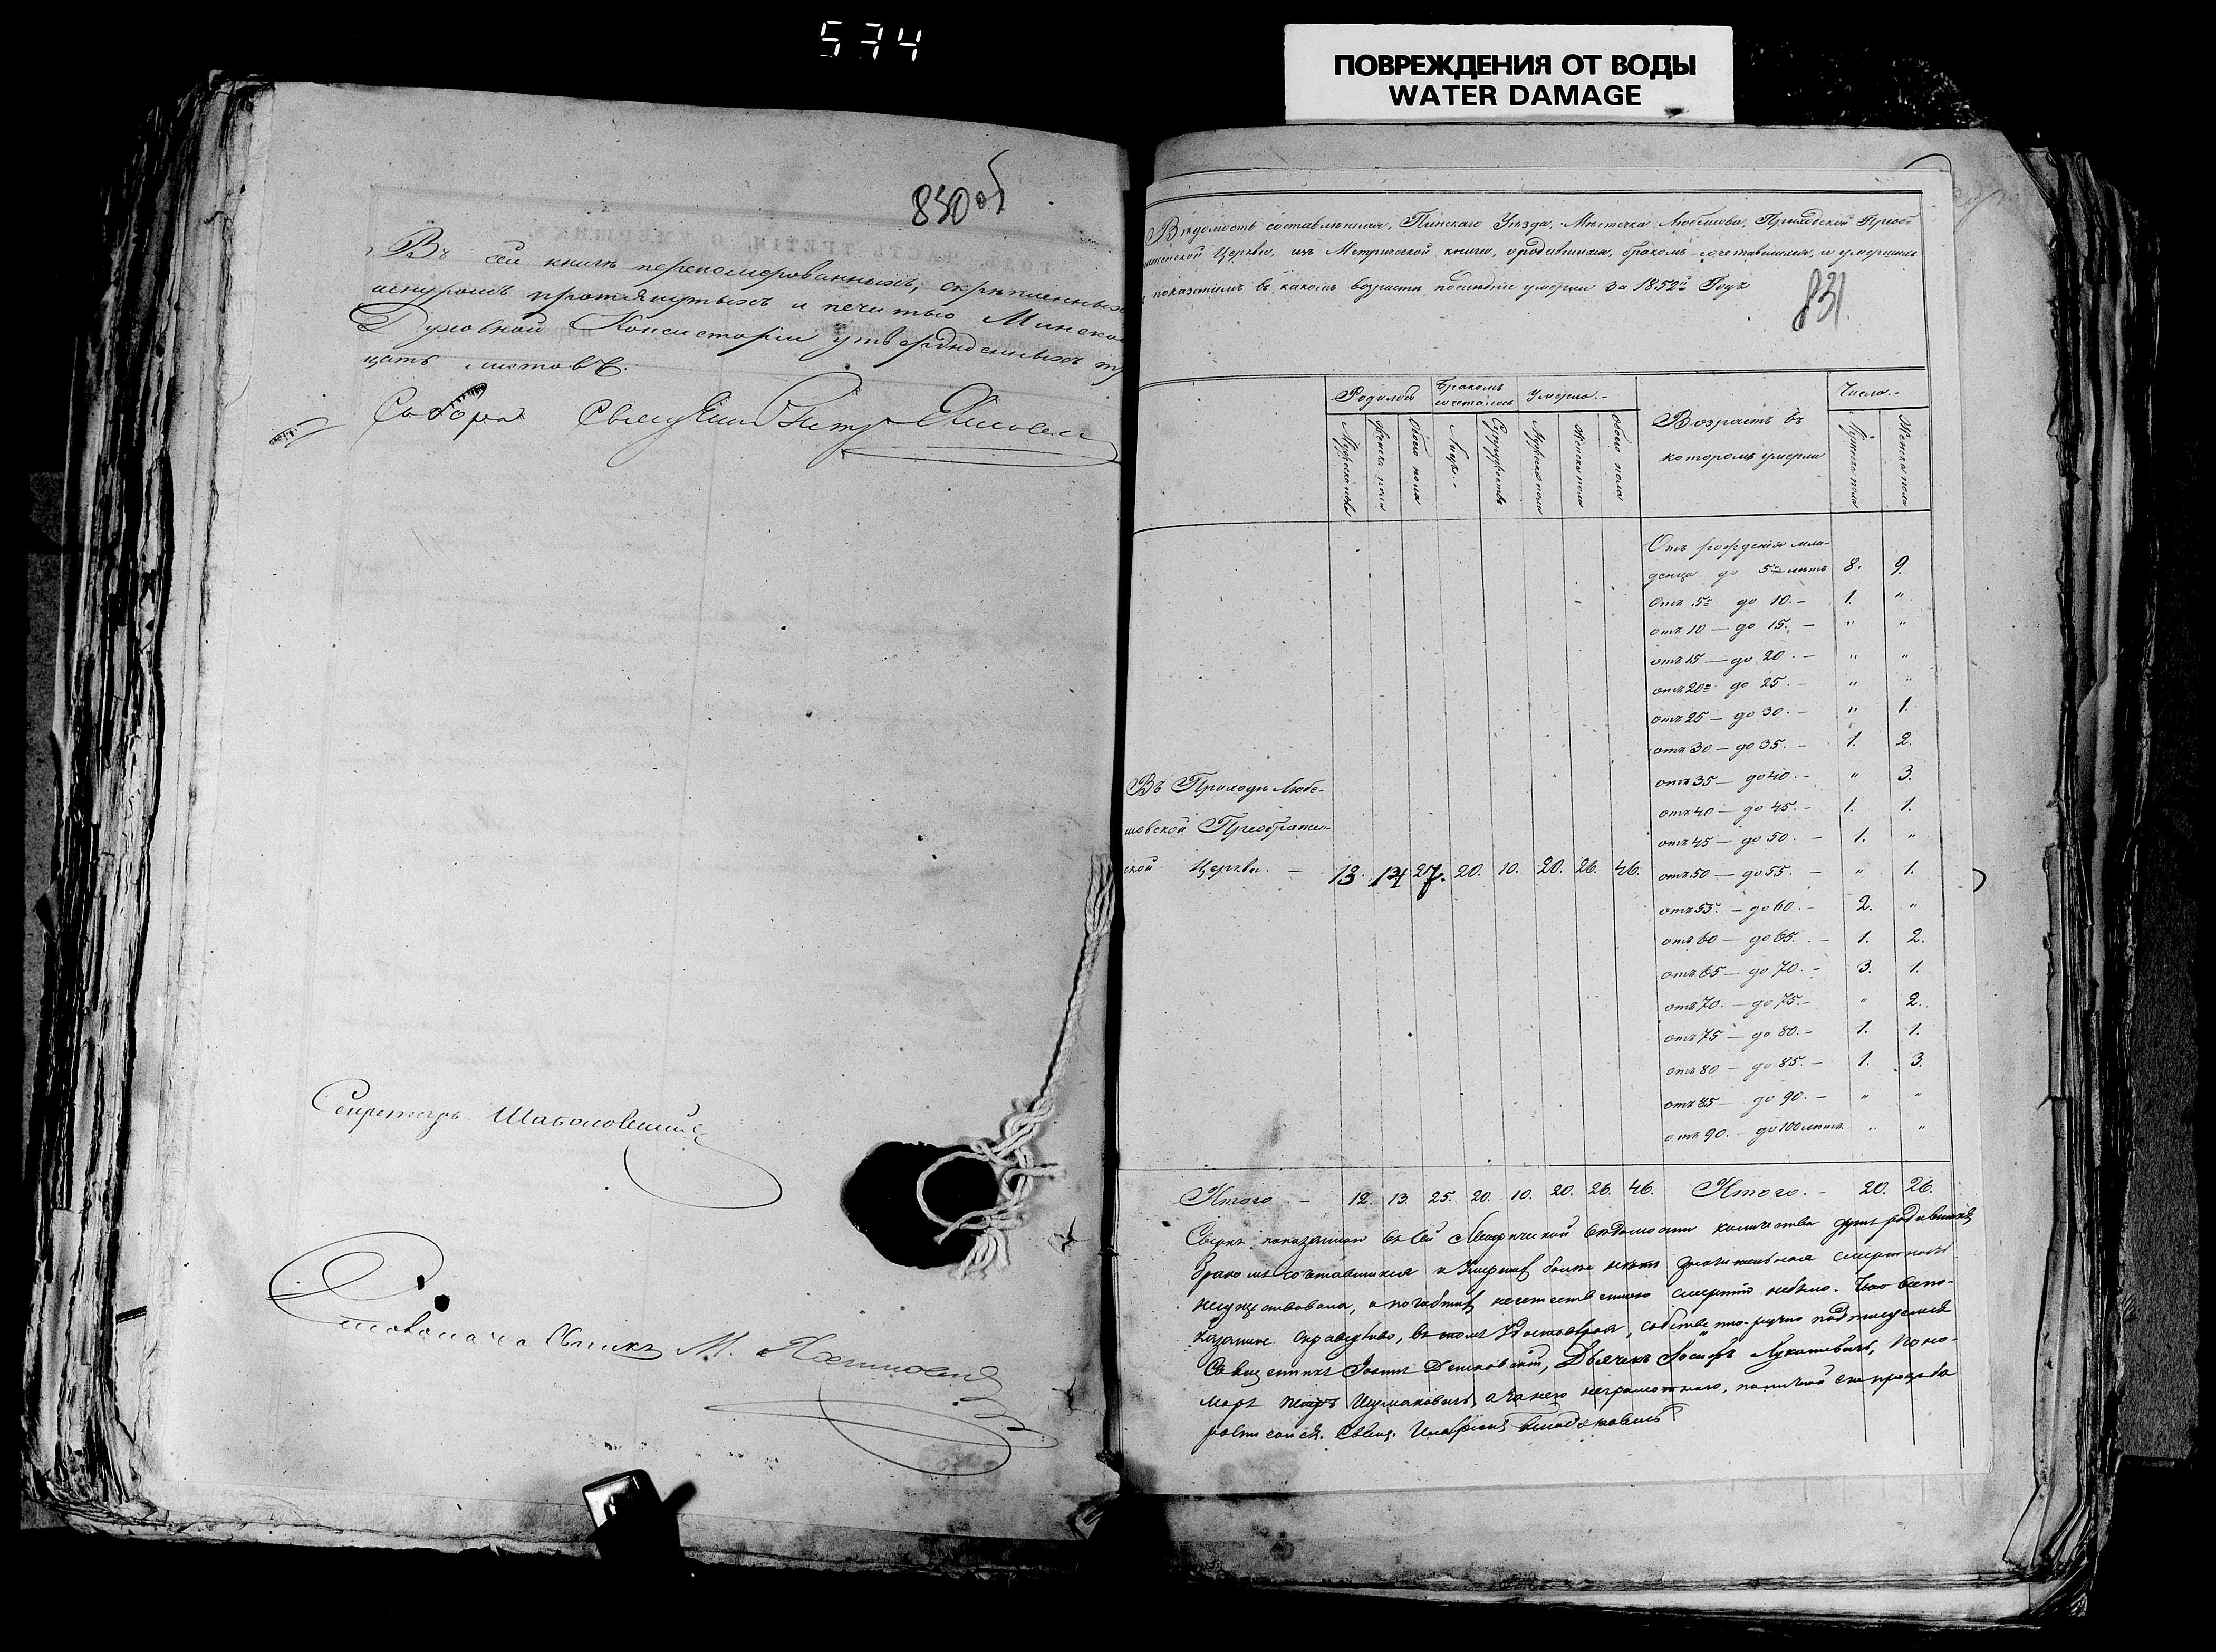 574
ПОВРЕЖДЕНИЯ ОТ ВОДЫ
WATER DAMAGE
830 об
Въ сей книгѣ перенумерованныхъ, скрѣпленныхъ
шнуромъ протянутыхъ и печатью Минской
Духовной Консисторіи утвержденныхъ
цать листовъ.
Собора
Секретарь
Столоначальникъ М.
Вѣдомость составленная, Пинскаго Уѣзда, Мѣстечка Любешова, Приходской Преоб-
Церкви, изъ Метрической книги, о родившихся, бракомъ сочетавшихся, и умершихъ
показаніемъ въ какомъ возрастѣ послѣдніе умерли за 1852й Годъ
831.
Родилось
Бракомъ сочеталось
Умерло.-
Возрастъ въ
которомъ умерли
Число.-
Мужеска пола
Женска пола
Обоего пола
Лицъ
Супружествъ
Мужеска пола
Женска пола
Обоего пола
Мужеска пола
Женска пола
Отъ рожденія мла-
денца до 5 лѣтъ 8. 9.
Отъ 5 до 10.- 1. "
отъ 10 — до 15. — " "
отъ 15 — до 20. — " "
отъ 20 до 25. — " "
отъ 25 — до 30. — " 1.
отъ 30 — до 35. — 1. 2.
отъ 35 — до 40. - " 3.
отъ 40 — до 45. - 1. 1.
отъ 45 — до 50. — 1. "
отъ 50 — до 55. — " 1.
отъ 55. — до 60. — 2. "
отъ 60 — до 65. — 1. 2.
отъ 65 — до 70. — 3. 1.
отъ 70. — до 75. - " 2.
отъ 75 — до 80. — 1. 1.
отъ 80 — до 85. — 1. 3.
отъ 85 — до 90. — " "
отъ 90. — до 100 лѣтъ " "
Въ Приходѣ Любе-
шовской Преображен-
ской Церкви. — 13. 14 27. 20. 10. 20. 26. 46.
Итого. — 12. 13. 25. 20. 10. 20. 26. 46. Итого. — 20. 26.
Сверхъ показанной въ сей Метрической вѣдомости количества душъ родившихся
бракомъ сочетавшихся и умершихъ болѣе нѣтъ смертность
не существовала, а погибшихъ неестественною смертію небыло. Что все по-
казанное справедливо, въ томъ удостовѣряя, собственно-ручно подписуемся
Священникъ Іоаннъ Дьячекъ Іосифъ Лукашевичъ, Поно-
марь Петръ а за него неграмотнаго, по личной его прозьбѣ
росписался. Свящ.